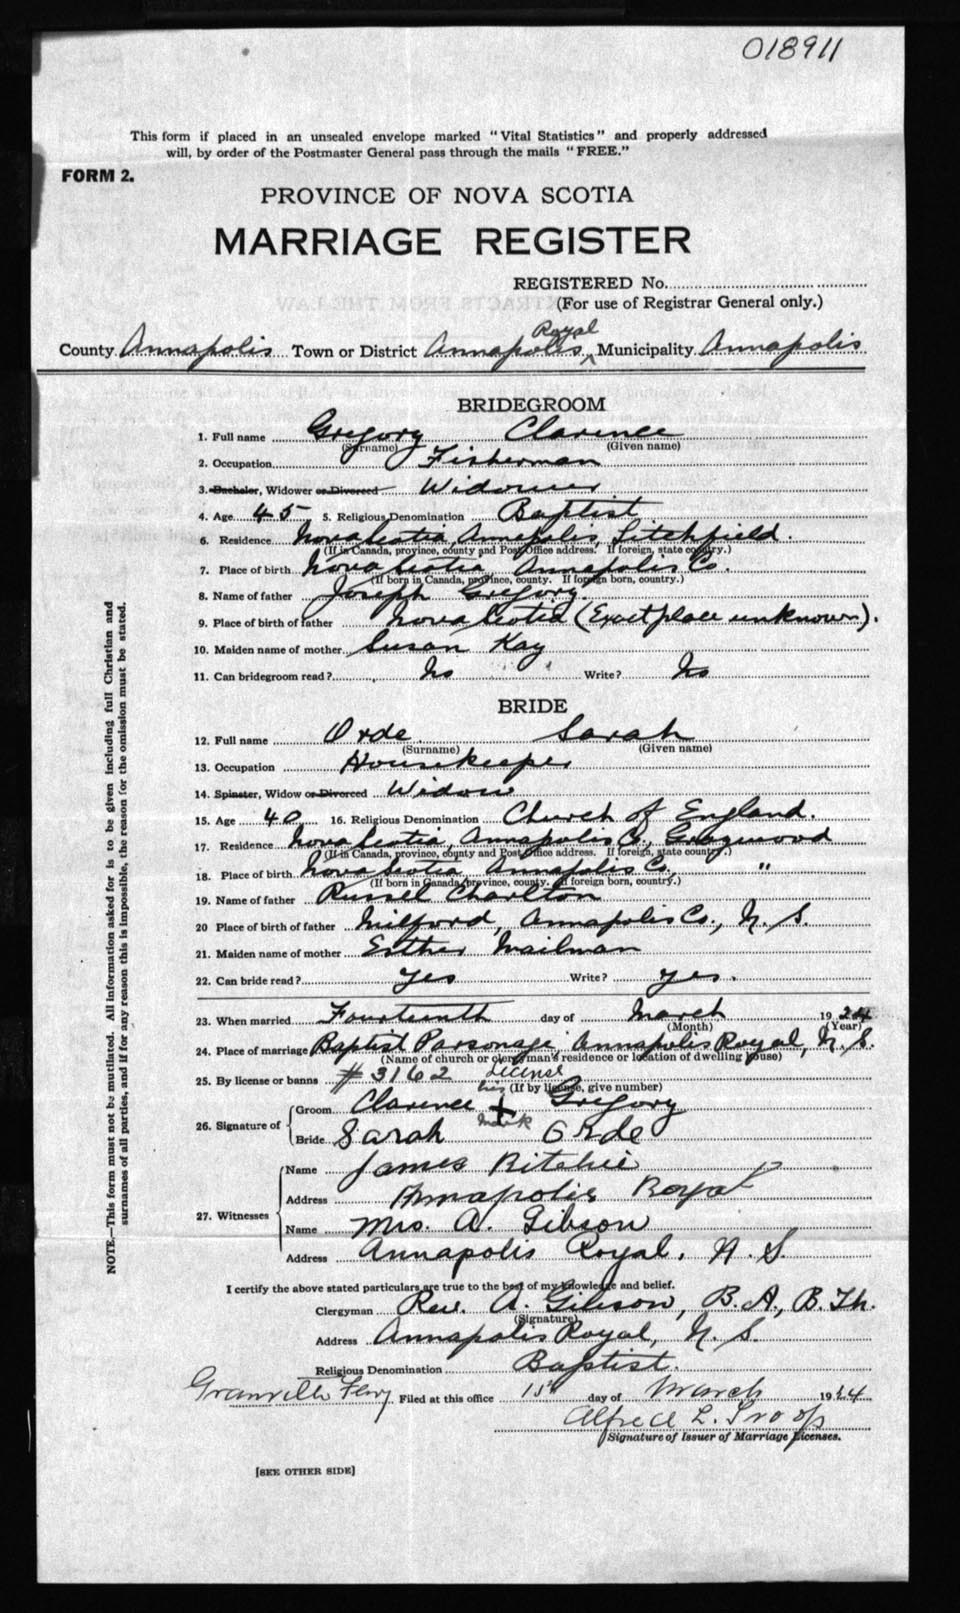 018911
This form if placed in an unsealed envelope marked "Vital Statistics" and properly addressed
will, by order of the Postmaster General pass through the mails "FREE."
FORM 2.
PROVINCE OF NOVA SCOTIA
MARRIAGE REGISTER
REGISTERED No.
(For use of Registrar General only.)
Royal
County Annapolis Town or District Annapolis ^ Municipality Annapolis
BRIDEGROOM
1. Full name Gregory Clarence
(Surname) (Given name)
2. Occupation Fisherman
3. Bachelor, Widower or Divorced Widower
4. Age 45 5. Religious Denomination Baptist
6. Residence Nova Scotia, Annapolis, Litchfield.
(If in Canada, province, county and Post Office address. If foreign, state country.)
7. Place of birth Nova Scotia, Annapolis Co.
(If born in Canada, province, county. If foreign born, country.)
8. Name of father Joseph Gregory.
9. Place of birth of father Nova Scotia (Exact place unknown).
10. Maiden name of mother Susan Kay
11. Can bridegroom read? No Write? No
BRIDE
12. Full name Orde Sarah
(Surname) (Given name)
13. Occupation Housekeeper
14. Spinster, Widow or Divorced Widow
15. Age 40 16. Religious Denomination Church of England.
17. Residence Nova Scotia, Annapolis Co.,
(If in Canada, province, county and Post Office address. If foreign, state country.)
18. Place of birth Nova Scotia, Annapolis Co., "
(If born in Canada, province, county. If foreign born, country.)
19. Name of father Russel Charlton
20 Place of birth of father Milford, Annapolis Co., N. S.
21. Maiden name of mother Esther Mailman
22. Can bride read? yes Write? yes.
23. When married Fourteenth day of March 1924
(Month) (Year)
24. Place of marriage Baptist Parsonage, Annapolis Royal, N. S.
(Name of church or clergyman's residence or location of dwelling house)
25. By license or banns #3162 License
(If by license, give number)
his
26. Signature of Groom Clarence + Gregory
mark
Bride Sarah Orde
27. Witnesses Name James Ritchie
Address Annapolis Royal
Name Mrs. A. Gibson
Address Annapolis Royal, N. S.
I certify the above stated particulars are true to the best of my knowledge and belief.
Clergyman Rev. A. Gibson, B.A., B.Th.
(Signature)
Address Annapolis Royal, N. S.
Religious Denomination Baptist.
Granville Ferry Filed at this office 15th day of March 1924
Alfred L. Troop
Signature of Issuer of Marriage Licenses.
[SEE OTHER SIDE]
NOTE.—This form must not be mutilated. All information asked for is to be given including full Christian and
surnames of all parties, and if for any reason this is impossible, the reason for the omission must be stated.